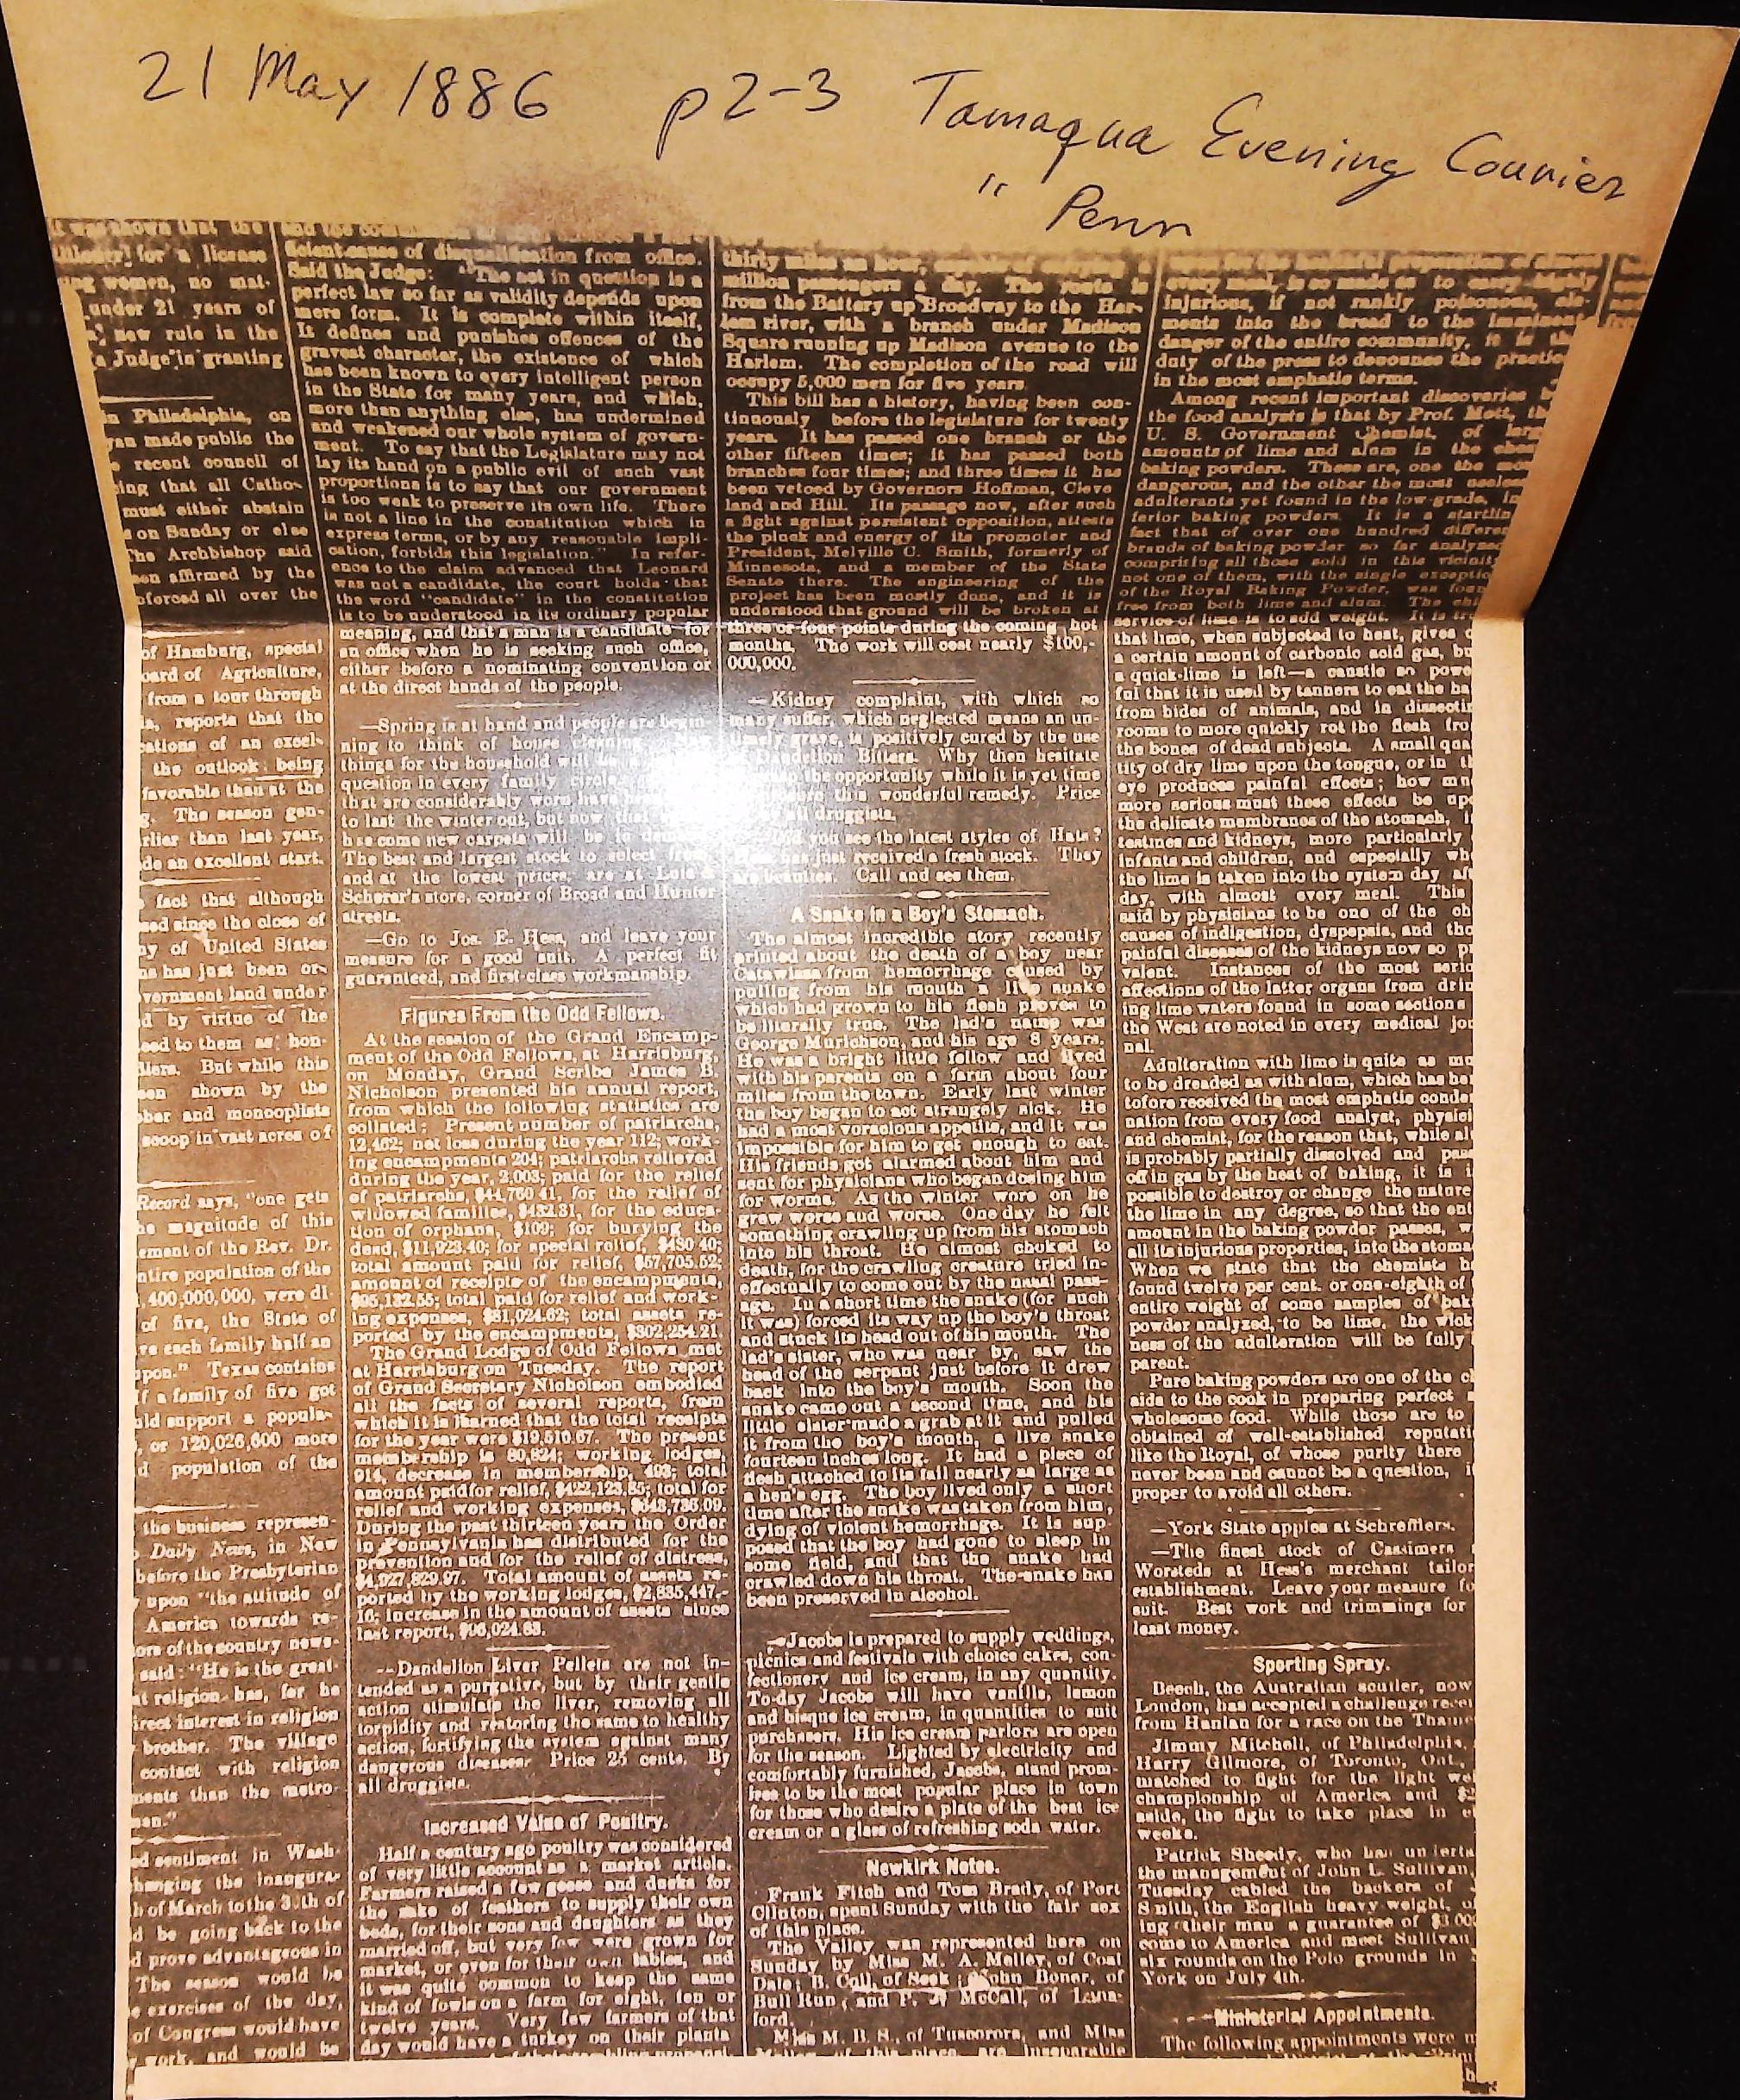 21 May 1886 p2-3 Tamaqua Evening Courier
" Penn
it was shown that the
for a license
ing women, no mat-
under 21 years of
new rule in the
a Judge in granting
in Philadelphia, on
yan made public the
recent council of
ing that all Catho-
must either abstain
on Sunday or else
The Archbishop said
een affirmed by the
nforced all over the
of Hamburg, special
oard of Agriculture,
from a tour through
ls, reports that the
cations of an excel-
the outlook being
favorable than at the
g. The season gen-
rlier than last year,
de an excellent start.
fact that although
sed since the close of
ny of United States
ns has just been or-
vernment land under
d by virtue of the
eed to them as hon-
llers. But while this
een shown by the
ber and monoplists
scoop in vast acres of
Record says, "one gets
he magnitude of this
ement of the Rev. Dr.
ntire population of the
,400,000,000, were di-
of five, the State of
ve each family half an
pon." Texas contains
If a family of five got
uld support a popula-
, or 120,026,600 more
d population of the
the business represen-
Daily News, in New
before the Presbyterian
upon "the attitude of
America towards re-
tors of the country news-
said: "He is the great-
at religion has, for he
irect interest in religion
brother. The village
contact with religion
ments than the metro-
man."
ed sentiment in Wash-
hanging the inaugura-
h of March to the 30th of
d be going back to the
d prove advantageous in
The season would be
e exercises of the day,
of Congress would have
work, and would be
ficient cause of disqualification from office.
Said the Judge: "The act in question is a
perfect law so far as validity depends upon
mere form. It is complete within itself,
It defines and punishes offences of the
gravest character, the existence of which
has been known to every intelligent person
in the State for many years, and which,
more than anything else, has undermined
and weakened our whole system of govern-
ment. To say that the Legislature may not
lay its hand on a public evil of such vast
proportions is to say that our government
is too weak to preserve its own life. There
is not a line in the constitution which in
express terms, or by any reasonable impli-
cation, forbids this legislation." In refer-
ence to the claim advanced that Leonard
was not a candidate, the court holds that
the word "candidate" in the constitution
is to be understood in its ordinary popular
meaning, and that a man is a candidate for
an office when he is seeking such office,
either before a nominating convention or
at the direct hands of the people.
—Spring is at hand and people are begin-
ning to think of house cleaning. New
things for the household will be a
question in every family circle.
that are considerably worn have
to last the winter out, but now that
has come new carpets will be in
The best and largest stock to select from
and at the lowest prices, are at
Scherer's store, corner of Broad and Hunter
streets.
—Go to Jos. E. Hess, and leave your
measure for a good suit. A perfect fit
guaranteed, and first-class workmanship.
Figures From the Odd Fellows.
At the session of the Grand Encamp-
ment of the Odd Fellows, at Harrisburg,
on Monday, Grand Scribe James B.
Nicholson presented his annual report,
from which the following statistics are
collated: Present number of patriarchs,
12,462; net loss during the year 112; work-
ing encampments 204; patriarchs relieved
during the year, 2,003; paid for the relief
of patriarchs, $44,760 41, for the relief of
widowed families, $432.31, for the educa-
tion of orphans, $109; for burying the
dead, $11,923.40; for special relief, $480 40;
total amount paid for relief, $57,705.52;
amount of receipts of the encampments,
$95,132.55; total paid for relief and work-
ing expenses, $81,024.62; total assets re-
ported by the encampments, $302,254.21.
The Grand Lodge of Odd Fellows met
at Harrisburg on Tuesday. The report
of Grand Secretary Nicholson embodied
all the facts of several reports, from
which it is learned that the total receipts
for the year were $19,510.67. The present
membership is 80,824; working lodges,
914, decrease in membership, 493; total
amount paid for relief, $422,123.85; total for
relief and working expenses, $643,736.09.
During the past thirteen years the Order
in Pennsylvania has distributed for the
prevention and for the relief of distress,
$4,927,829.97. Total amount of assets re-
ported by the working lodges, $2,635,447.-
16; increase in the amount of assets since
last report, $96,024.63.
--Dandelion Liver Pellets are not in-
tended as a purgative, but by their gentle
action stimulate the liver, removing all
torpidity and restoring the same to healthy
action, fortifying the system against many
dangerous diseases. Price 25 cents. By
all druggists.
Increased Value of Poultry.
Half a century ago poultry was considered
of very little account as a market article.
Farmers raised a few geese and ducks for
the sake of feathers to supply their own
beds, for their sons and daughters as they
married off, but very few were grown for
market, or even for their own tables, and
it was quite common to keep the same
kind of fowls on a farm for eight, ten or
twelve years. Very few farmers of that
day would have a turkey on their planta
thirty miles an hour,
million passengers a day. The route is
from the Battery up Broadway to the Har-
lem river, with a branch under Madison
Square running up Madison avenue to the
Harlem. The completion of the road will
occupy 5,000 men for five years.
This bill has a history, having been con-
tinuously before the legislature for twenty
years. It has passed one branch or the
other fifteen times; it has passed both
branches four times; and three times it has
been vetoed by Governors Hoffman, Cleve
land and Hill. Its passage now, after such
a fight against persistent opposition, attests
the pluck and energy of its promoter and
President, Melville C. Smith, formerly of
Minnesota, and a member of the State
Senate there. The engineering of the
project has been mostly done, and it is
understood that ground will be broken at
three or four points during the coming hot
months. The work will cost nearly $100,-
000,000.
—Kidney complaint, with which so
many suffer, which neglected means an un-
timely grave, is positively cured by the use
Dandelion Bitters. Why then hesitate
the opportunity while it is yet time
this wonderful remedy. Price
all druggists.
you see the latest styles of Hats?
has just received a fresh stock. They
are beauties. Call and see them.
A Snake in a Boy's Stomach.
The almost incredible story recently
printed about the death of a boy near
Catawissa from hemorrhage caused by
pulling from his mouth a live snake
which had grown to his flesh proves to
be literally true. The lad's name was
George Murichson, and his age 8 years.
He was a bright little fellow and lived
with his parents on a farm about four
miles from the town. Early last winter
the boy began to act straugely sick. He
had a most voracious appetite, and it was
impossible for him to get enough to eat.
His friends got alarmed about him and
sent for physicians who began dosing him
for worms. As the winter wore on he
grew worse aud worse. One day he felt
something crawling up from his stomach
into his throat. He almost choked to
death, for the crawling creature tried in-
effectually to come out by the usual pass-
age. In a short time the snake (for such
it was) forced its way up the boy's throat
and stuck its head out of his mouth. The
lad's sister, who was near by, saw the
head of the serpant just before it drew
back into the boy's mouth. Soon the
snake came out a second time, and his
little sister made a grab at it and pulled
it from the boy's mouth, a live snake
fourteen inches long. It had a piece of
flesh attached to its tail nearly as large as
a hen's egg. The boy lived only a short
time after the snake was taken from him,
dying of violent hemorrhage. It is sup-
posed that the boy had gone to sleep in
some field, and that the snake had
crawled down his throat. The snake has
been preserved in alcohol.
—Jacobs is prepared to supply weddings,
picnics and festivals with choice cakes, con-
fectionery and ice cream, in any quantity.
To-day Jacobs will have vanilla, lemon
and bisque ice cream, in quantities to suit
purchasers. His ice cream parlors are open
for the season. Lighted by electricity and
comfortably furnished, Jacobs, stand prom-
ises to be the most popular place in town
for those who desire a plate of the best ice
cream or a glass of refreshing soda water.
Newkirk Notes.
Frank Fitch and Tom Brady, of Port
Clinton, spent Sunday with the fair sex
of this place.
The Valley was represented here on
Sunday by Miss M. A. Melley, of Coal
Dale; B. Coll, of Seek; John Boner, of
Bull Run; and P. J. McCall, of Lans-
ford.
Miss M. B. S., of Tuscorora, and Miss
of this place are inseparable
every meal, is so made as to carry
injurious, if not rankly poisonous, ele-
ments into the bread to the imminent
danger of the entire community, it is the
duty of the press to denounce the practice
in the most emphatic terms.
Among recent important discoveries b
the food analysts is that by Prof. Mott, the
U. S. Government Chemist, of large
amounts of lime and alum in the cheap
baking powders. These are, one the most
dangerous, and the other the most useless
adulterants yet found in the low-grade, in
ferior baking powders. It is a startlin
fact that of over one hundred differen
brands of baking powder so far analyzed
comprising all those sold in this vicinity
not one of them, with the single exceptio
of the Royal Baking Powder, was foun
free from both lime and alum. The chi
service of lime is to add weight. It is tr
that lime, when subjected to heat, gives o
a certain amount of carbonic acid gas, bu
a quick-lime is left—a caustic so powe
ful that it is used by tanners to eat the ha
from hides of animals, and in dissectin
rooms to more quickly rot the flesh fro
the bones of dead subjects. A small qua
tity of dry lime upon the tongue, or in th
eye produces painful effects; how mu
more serious must these effects be upo
the delicate membranes of the stomach, i
testines and kidneys, more particularly
infants and children, and especially whe
the lime is taken into the system day aft
day, with almost every meal. This
said by physicians to be one of the ch
causes of indigestion, dyspepsia, and tho
painful diseases of the kidneys now so pr
valent. Instances of the most serio
affections of the latter organs from drin
ing lime waters found in some sections
the West are noted in every medical jou
nal.
Adulteration with lime is quite as mu
to be dreaded as with alum, which has he
tofore received the most emphatic conde
nation from every food analyst, physici
and chemist, for the reason that, while al
is probably partially dissolved and pass
off in gas by the heat of baking, it is i
possible to destroy or change the nature
the lime in any degree, so that the ent
amount in the baking powder passes, w
all its injurious properties, into the stoma
When we state that the chemists h
found twelve per cent. or one-eighth of
entire weight of some samples of bak
powder analyzed, to be lime, the wick
ness of the adulteration will be fully
parent.
Pure baking powders are one of the c
aids to the cook in preparing perfect
wholesome food. While those are to
obtained of well-established reputati
like the Royal, of whose purity there
never been and cannot be a question, i
proper to avoid all others.
—York State apples at Schrefflers.
—The finest stock of Cassimers
Worsteds at Hess's merchant tailor
establishment. Leave your measure fo
suit. Best work and trimmings for
least money.
Sporting Spray.
Beech, the Australian sculler, now
London, has accepted a challenge rece
from Hanlan for a race on the Thame
Jimmy Mitchell, of Philadelphia,
Harry Gilmore, of Toronto, Ont.,
matched to fight for the light we
championship of America and $2
aside, the fight to take place in
weeks.
Patrick Sheedy, who has underta
the management of John L. Sullivan,
Tuesday cabled the backers of
Smith, the English heavy weight, o
ing their mau a guarantee of $3 000
come to America and meet Sullivan
six rounds on the Polo grounds in
York on July 4th.
Ministerial Appointments.
The following appointments were m